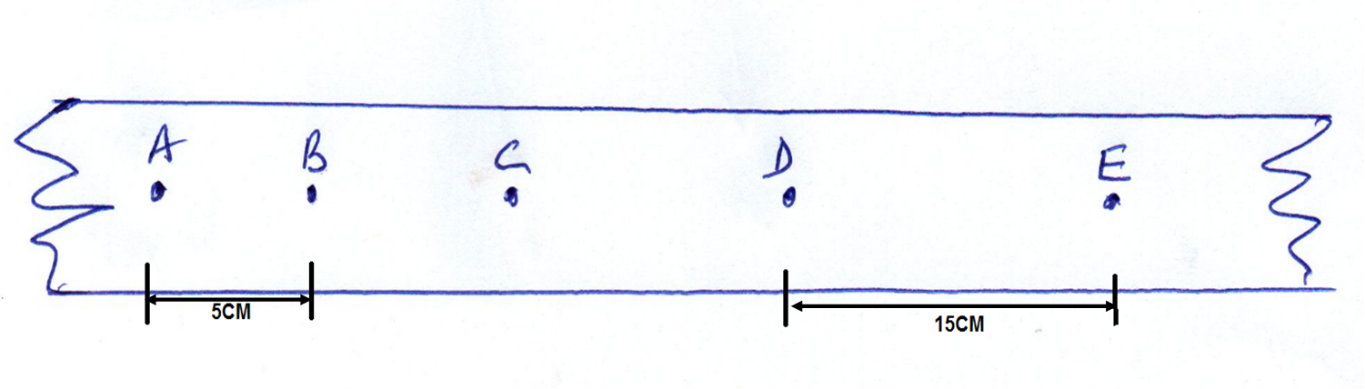 A B C D E
5CM
15CM